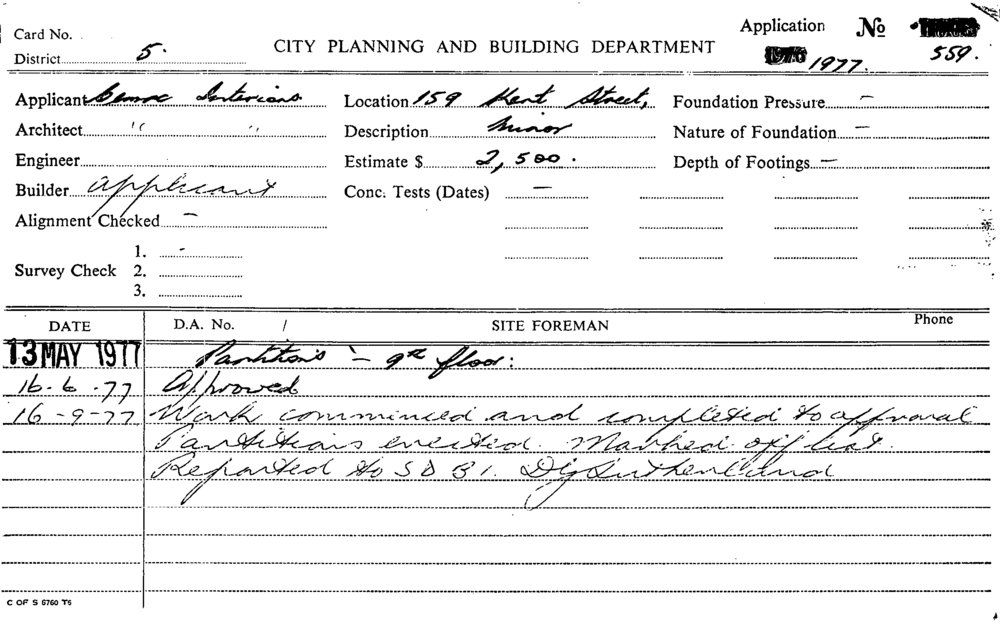 Card No.
District 5.
CITY PLANNING AND BUILDING DEPARTMENT
Application No
1977. 559.
Applicant Interiors
Location 159 Kent Street,
Foundation Pressure –
Architect " "
Description Minor
Nature of Foundation –
Engineer
Estimate $ 2,500.
Depth of Footings –
Builder Applicant
Conc. Tests (Dates) –
Alignment Checked –
Survey Check
1. -
2.
3.
DATE D.A. No. / SITE FOREMAN Phone
13 MAY 1977 Partitions :- 9th floor:
16-6-77 Approved
16-9-77 Work comminced and completed to approval
Partitions erected. Marked off list.
Reported to S D B I.
C OF S 6760 T6